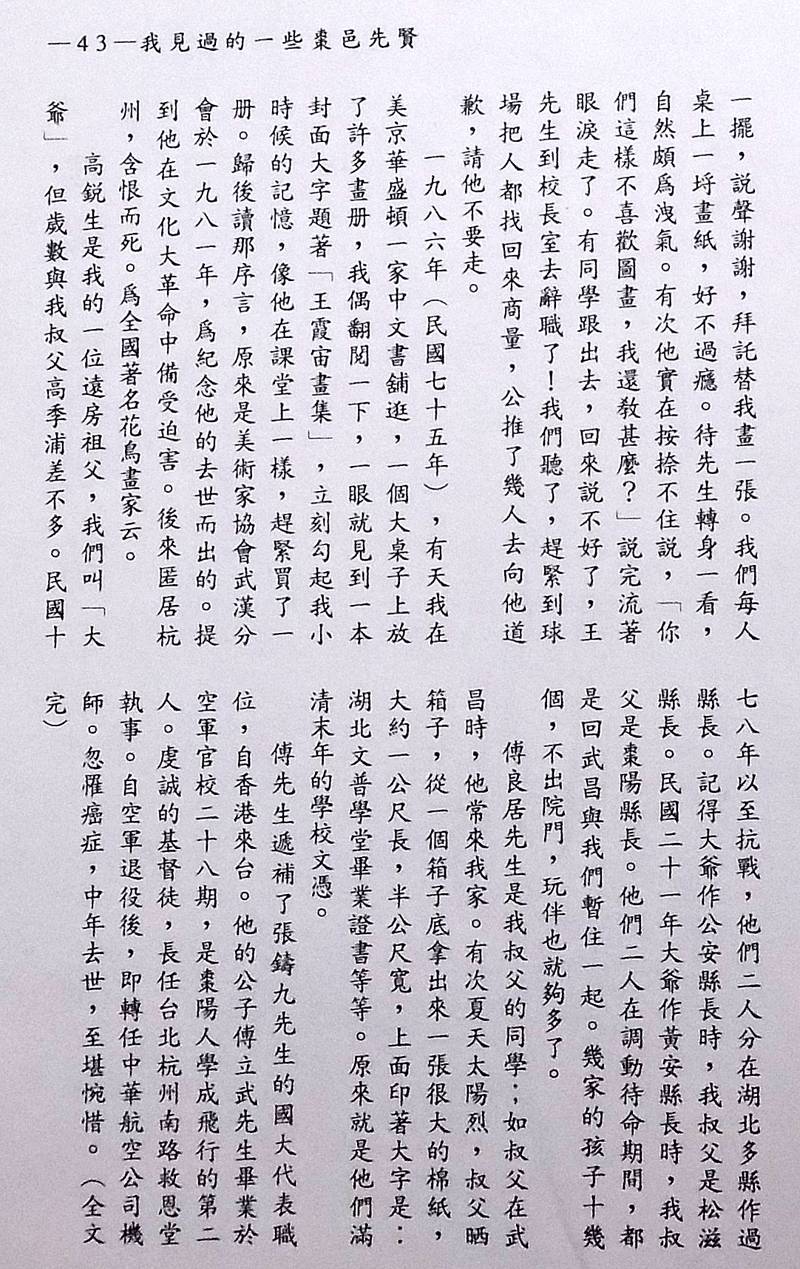 —43—我見過的一些棗邑先賢
一擺，說聲謝謝，拜託替我畫一張。我們每人
桌上一埒畫紙，好不過癮。待先生轉身一看，
自然頗爲洩氣。有次他實在按捺不住說，「你
們這樣不喜歡圖畫，我還教甚麼？」說完流著
眼淚走了。有同學跟出去，回來說不好了，王
先生到校長室去辭職了！我們聽了，趕緊到球
場把人都找回來商量，公推了幾人去向他道
歉，請他不要走。
一九八六年（民國七十五年），有天我在
美京華盛頓一家中文書舖逛，一個大桌子上放
了許多畫册，我偶翻閱一下，一眼就見到一本
封面大字題著「王霞宙畫集」，立刻勾起我小
時候的記憶，像他在課堂上一樣，趕緊買了一
册。歸後讀那序言，原來是美術家協會武漢分
會於一九八一年，爲紀念他的去世而出的。提
到他在文化大革命中備受迫害。後來匿居杭
州，含恨而死。爲全國著名花鳥畫家云。
高銳生是我的一位遠房祖父，我們叫「大
爺」，但歲數與我叔父高季浦差不多。民國十
七八年以至抗戰，他們二人分在湖北多縣作過
縣長。記得大爺作公安縣長時，我叔父是松滋
縣長。民國二十一年大爺作黃安縣長時，我叔
父是棗陽縣長。他們二人在調動待命期間，都
是回武昌與我們暫住一起。幾家的孩子十幾
個，不出院門，玩伴也就夠多了。
傅良居先生是我叔父的同學；如叔父在武
昌時，他常來我家。有次夏天太陽烈，叔父晒
箱子，從一個箱子底拿出來一張很大的棉紙，
大約一公尺長，半公尺寬，上面印著大字是：
湖北文普學堂畢業證書等等。原來就是他們滿
清末年的學校文憑。
傅先生遞補了張鑄九先生的國大代表職
位，自香港來台。他的公子傅立武先生畢業於
空軍官校二十八期，是棗陽人學成飛行的第二
人。虔誠的基督徒，長任台北杭州南路救恩堂
執事。自空軍退役後，即轉任中華航空公司機
師。忽罹癌症，中年去世，至堪惋惜。（全文
完）